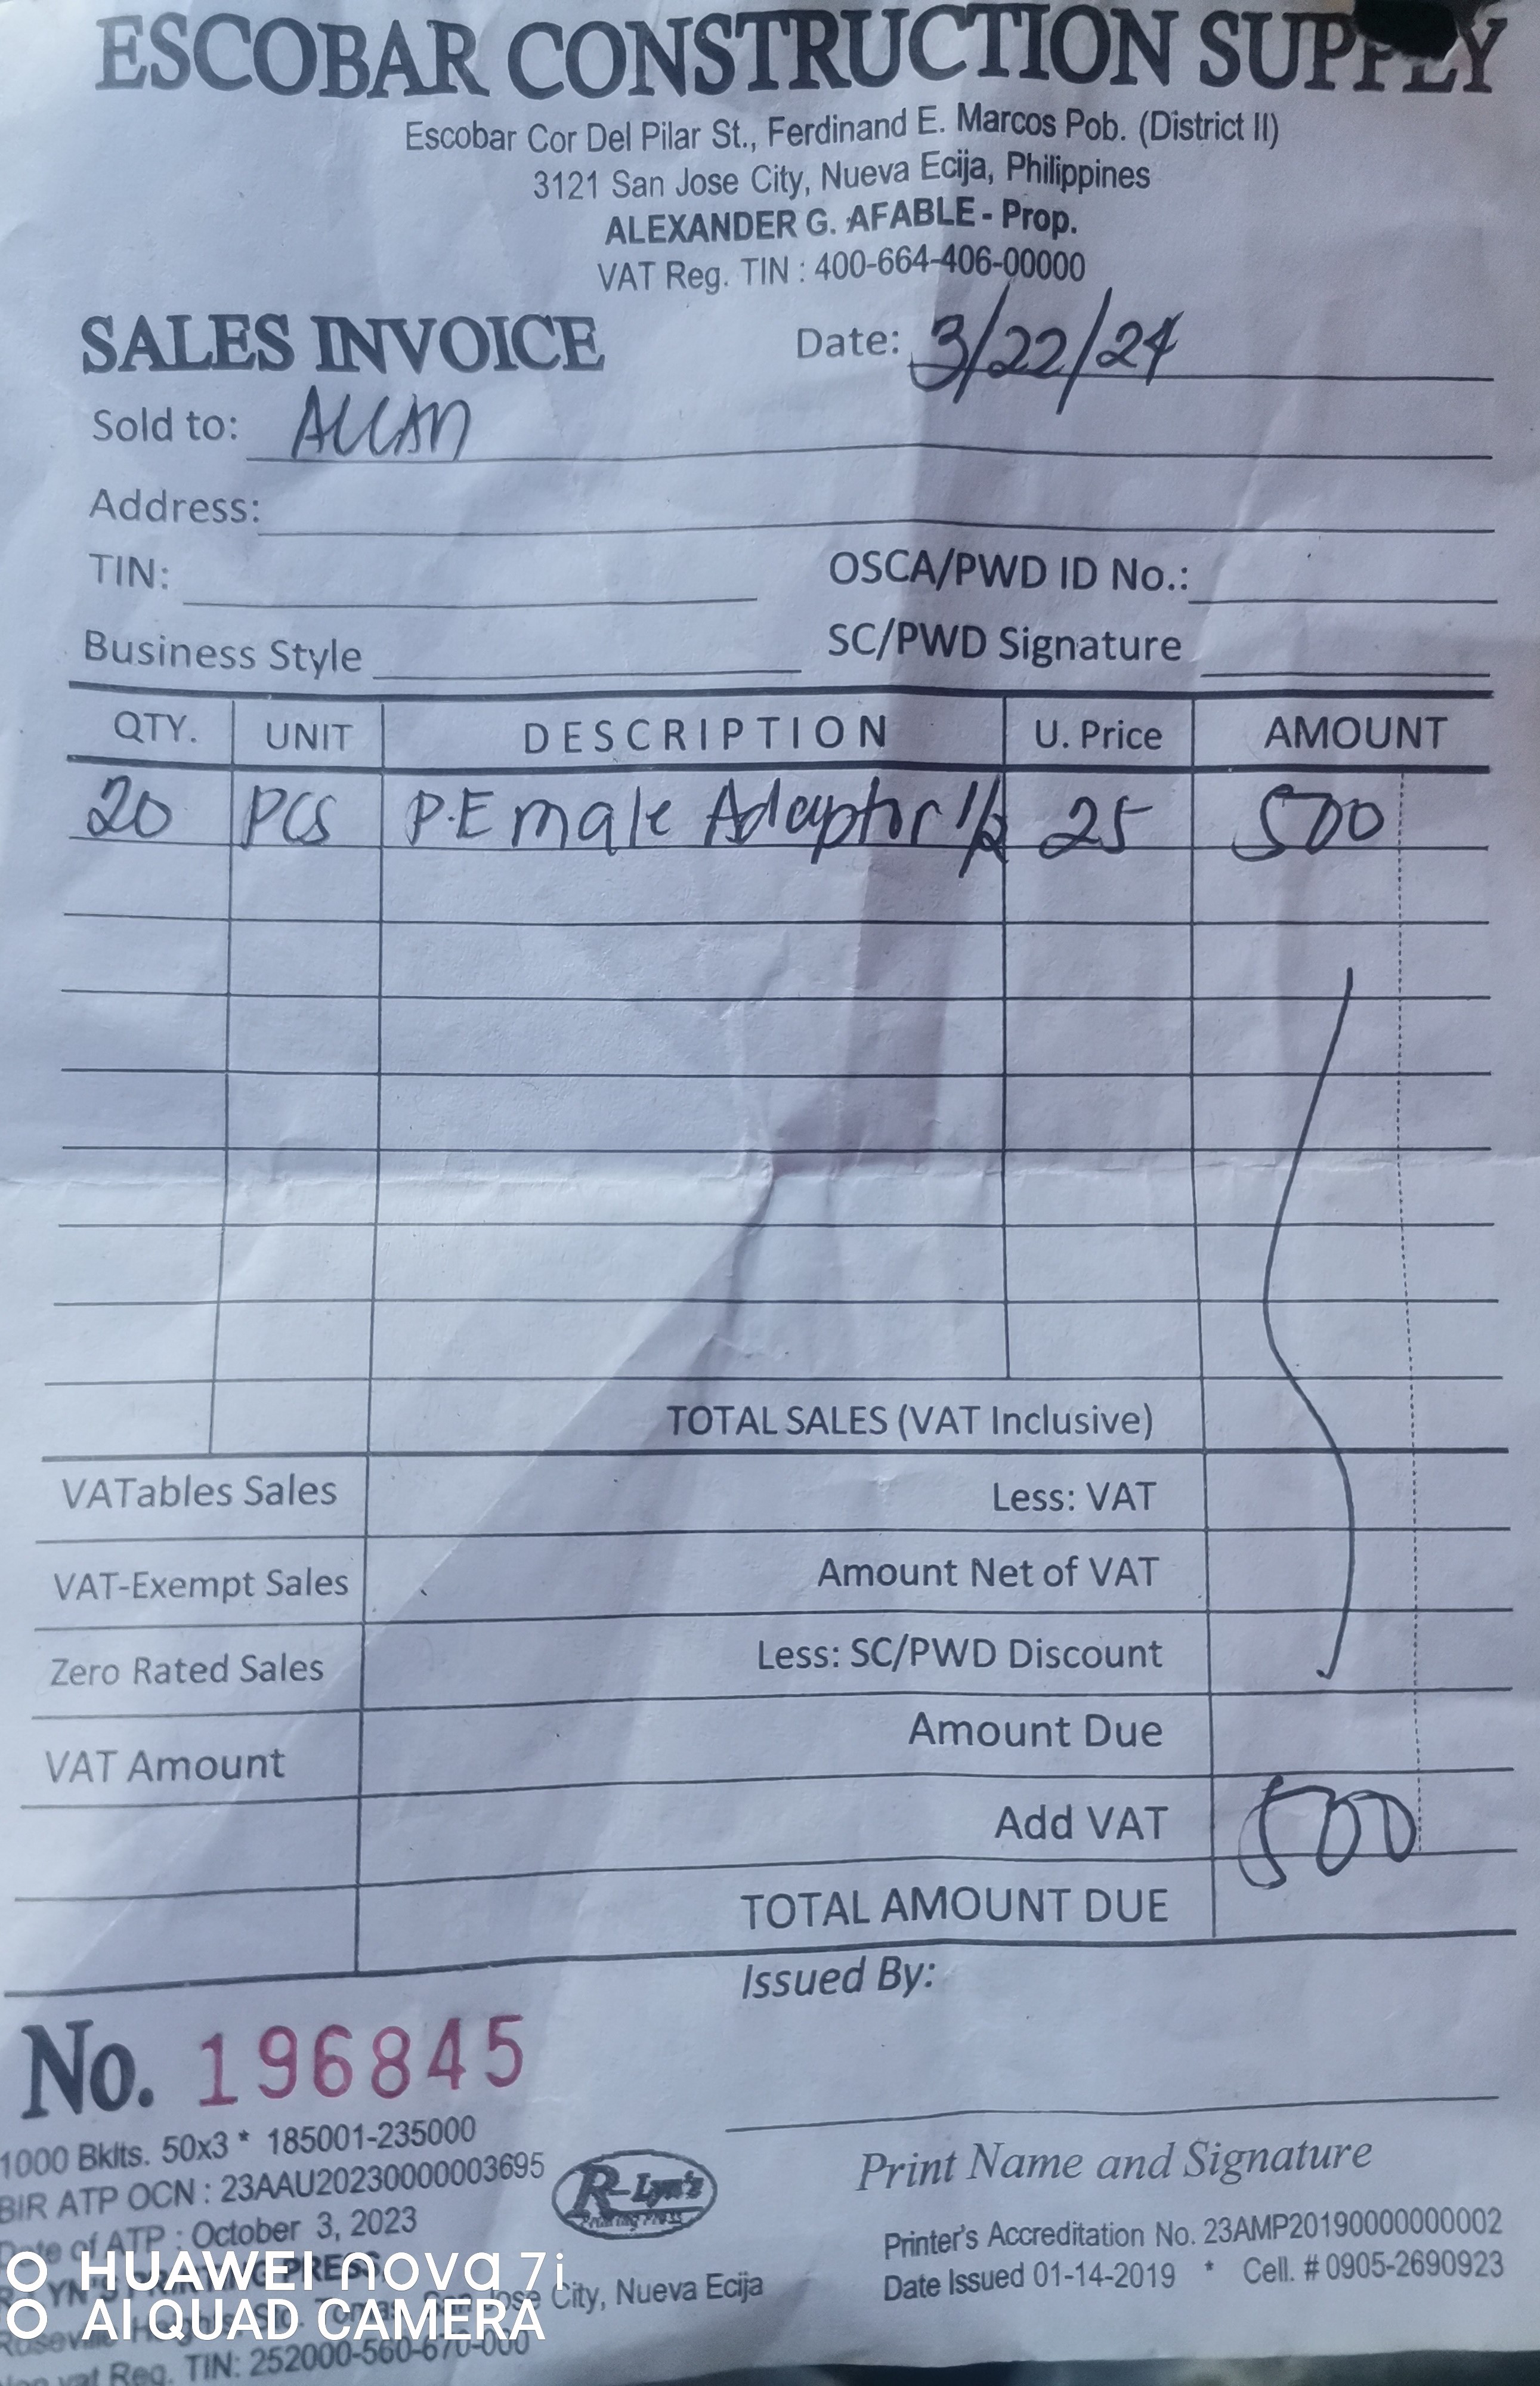 ESCOBAR CONSTRUCTION SUPPLY
Escobar Cor Del Pilar St., Ferdinand E. Marcos Pob. (District II)
3121 San Jose City, Nueva Ecija, Philippines
ALEXANDER G. AFABLE - Prop.
VAT Reg. TIN : 400-664-406-00000
SALES INVOICE Date: 3/22/24
Sold to: ALLAN
Address:
TIN: OSCA/PWD ID No.:
Business Style SC/PWD Signature
QTY. UNIT DESCRIPTION U. Price AMOUNT
20 PCS P.E male Adaptor 1/2 25 500
TOTAL SALES (VAT Inclusive)
VATables Sales Less: VAT
VAT-Exempt Sales Amount Net of VAT
Zero Rated Sales Less: SC/PWD Discount
VAT Amount Amount Due
Add VAT 500
TOTAL AMOUNT DUE
Issued By:
No. 196845
Print Name and Signature
1000 Bklts. 50x3 * 185001-235000
BIR ATP OCN : 23AAU20230000003695
Date of ATP : October 3, 2023
R-Lyn'z
Printing Press
Printer's Accreditation No. 23AMP20190000000002
Date Issued 01-14-2019 * Cell. # 0905-2690923
PRESS
San Jose City, Nueva Ecija
vat Reg. TIN: 252000-560-670-000
HUAWEI nova 7i
AI QUAD CAMERA